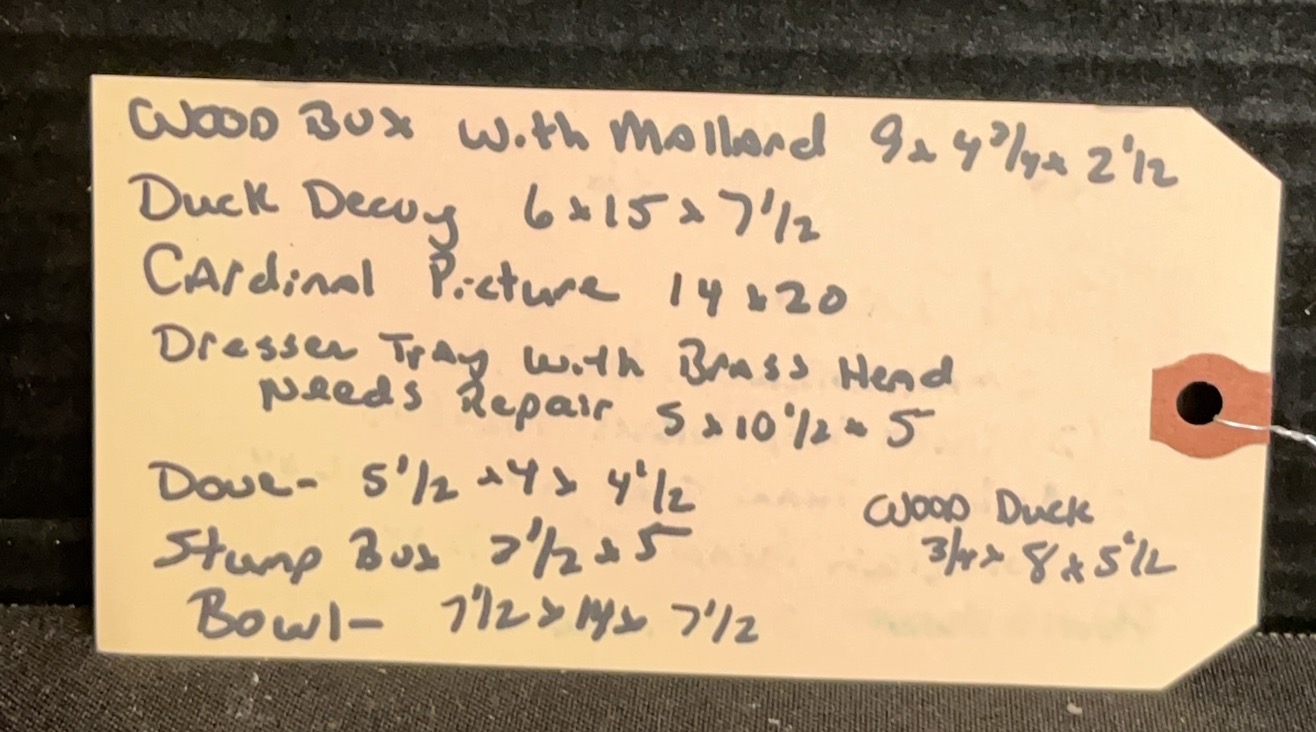 Wood Box with Mallard 9 x 4 3/4 x 2 1/2
Duck Decoy 6 x 15 x 7 1/2
Cardinal Picture 14 x 20
Dresser Tray with Brass Head
Needs Repair 5 x 10 1/2 x 5
Dove- 5 1/2 x 4 x 4 1/2
Stump Box 7 1/2 x 5
Bowl- 7 1/2 x 14 x 7 1/2
Wood Duck
3/4 x 8 x 5 1/2